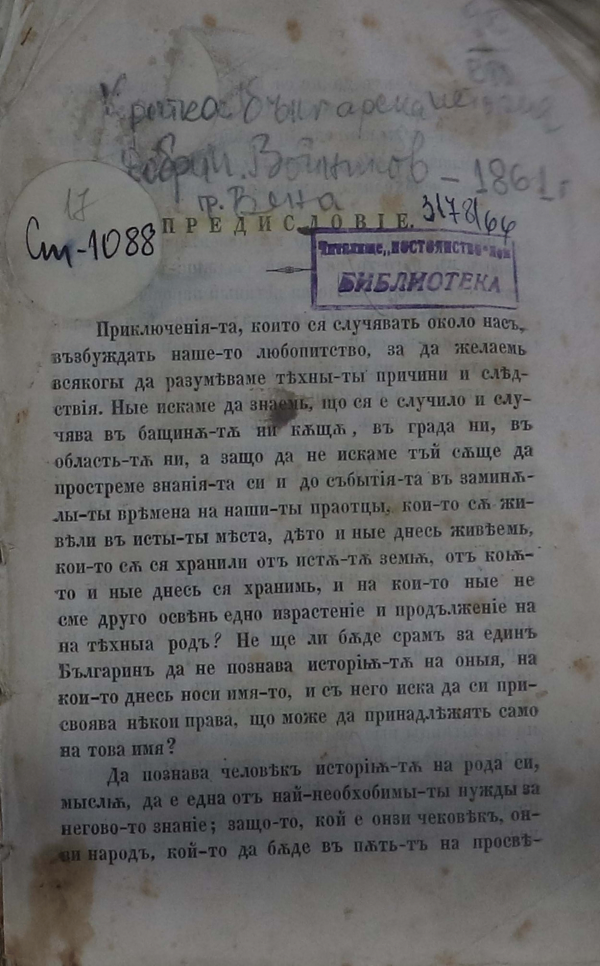 Кратка Българска история
Добри П. Войников – 1861 г
гр. Вена
17
Ст-1088
ПРЕДИСЛОВІЕ.
3178/66
Читалище „ПОСТОЯНСТВО“
БИБЛИОТЕКА
Приключенія-та, които ся случявать около насъ,
възбуждать наше-то любопитство, за да желаемь
всякогы да разумѣваме тѣхны-ты причини и слѣд-
ствія. Ные искаме да знаемь, що ся е случило и слу-
чява въ бащинѫ-тѫ ни кѫщѫ, въ града ни, въ
область-тѫ ни, а защо да не искаме тъй сѫще да
простреме знанія-та си и до събытія-та въ заминѫ-
лы-ты врѣмена на наши-ты праотцы, кои-то сѫ жи-
вѣли въ исты-ты мѣста, дѣто и ные днесь живѣемь,
кои-то сѫ ся хранили отъ истѫ-тѫ земѭ, отъ коѭ-
то и ные днесь ся хранимь, и на кои-то ные не
сме друго освѣнь едно израстеніе и продълженіе на
на тѣхныа родъ? Не ще ли бѫде срамъ за единъ
Българинъ да не познава исторіѭ-тѫ на оныя, на
кои-то днесь носи имя-то, и съ него иска да си при-
своява нѣкои права, що може да принадлѣжять само
на това имя?
Да познава человѣкъ исторіѭ-тѫ на рода си,
мыслѭ, да е една отъ най-необхобимы-ты нужды за
негово-то знаніе; защо-то, кой е онзи чековѣкъ, он-
зи народъ, кой-то да бѫде въ пѫть-тъ на просвѣ-